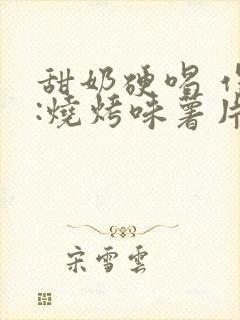 甜奶硬唱
:燒烤味薯片
宋雪雲